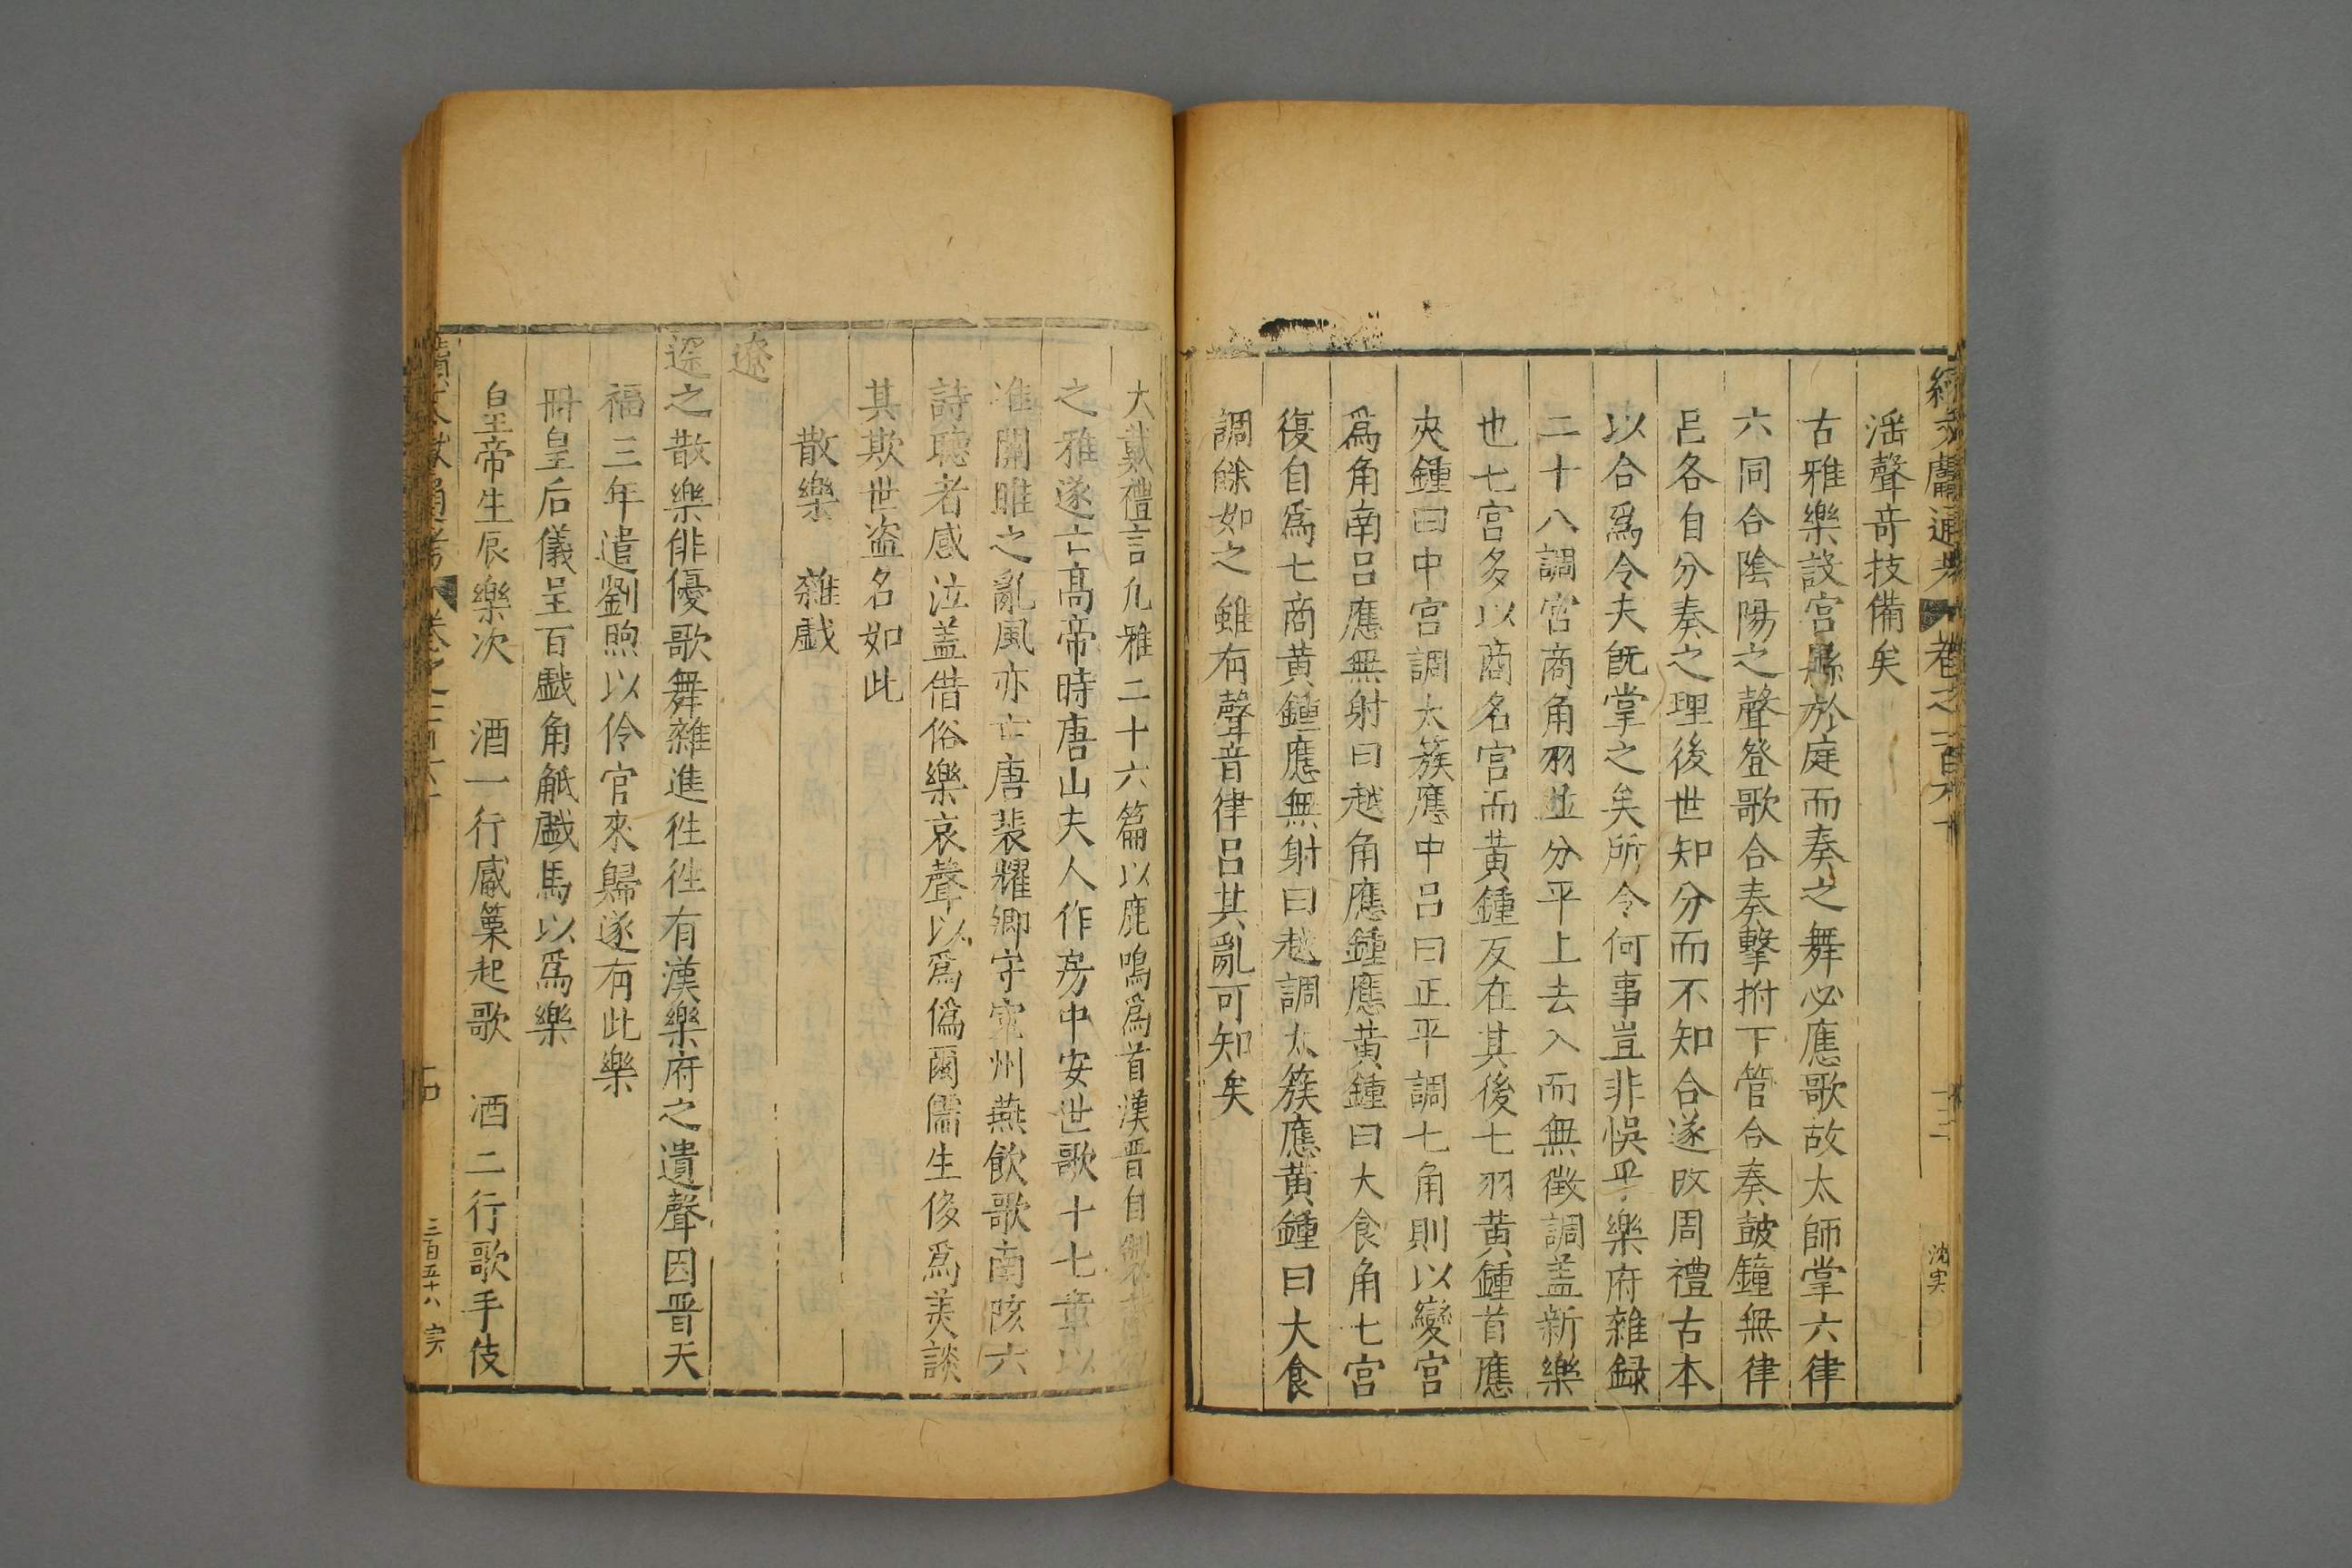 淫聲竒技備矣
古雅樂設宮縣於庭而奏之舞必應歌故太師掌六律
六同合陰陽之聲登歌合奏擊拊下管合奏鼓鐘無律
呂各自分奏之理後世知分而不知合遂改周禮古本
以合爲令夫既掌之矣所令何事豈非悞乎樂府雜録
二十八調宮商角羽並分平上去入而無徵調盖新樂
也七宮多以商名宮而黃鍾反在其後七羽黃鍾首應
夾鍾曰中宮調太簇應中呂曰正平調七角則以變宮
爲角南呂應無射曰越角應鍾應黃鍾曰大食角七宮
復自爲七商黃鍾應無射曰越調太簇應黃鍾曰大食
調餘如之雖有聲音律呂其亂可知矣
大戴禮言凡雅二十六篇以鹿鳴爲首漢晋自製
之雅遂亡髙帝時唐山夫人作房中安世歌十七章以
准關雎之亂風亦亡唐裴耀卿守宣州燕飲歌南陔六
詩聽者感泣盖借俗樂哀聲以爲僞爾儒生俊爲美談
其欺世盗名如此
散樂 雜戱
遼
遼之散樂俳優歌舞雜進徃徃有漢樂府之遺聲因晋天
福三年遣劉煦以伶官來歸遂有此樂
冊皇后儀呈百戱角觝戱馬以爲樂
皇帝生辰樂次 酒一行觱篥起歌 酒二行歌手伎
三百五十八